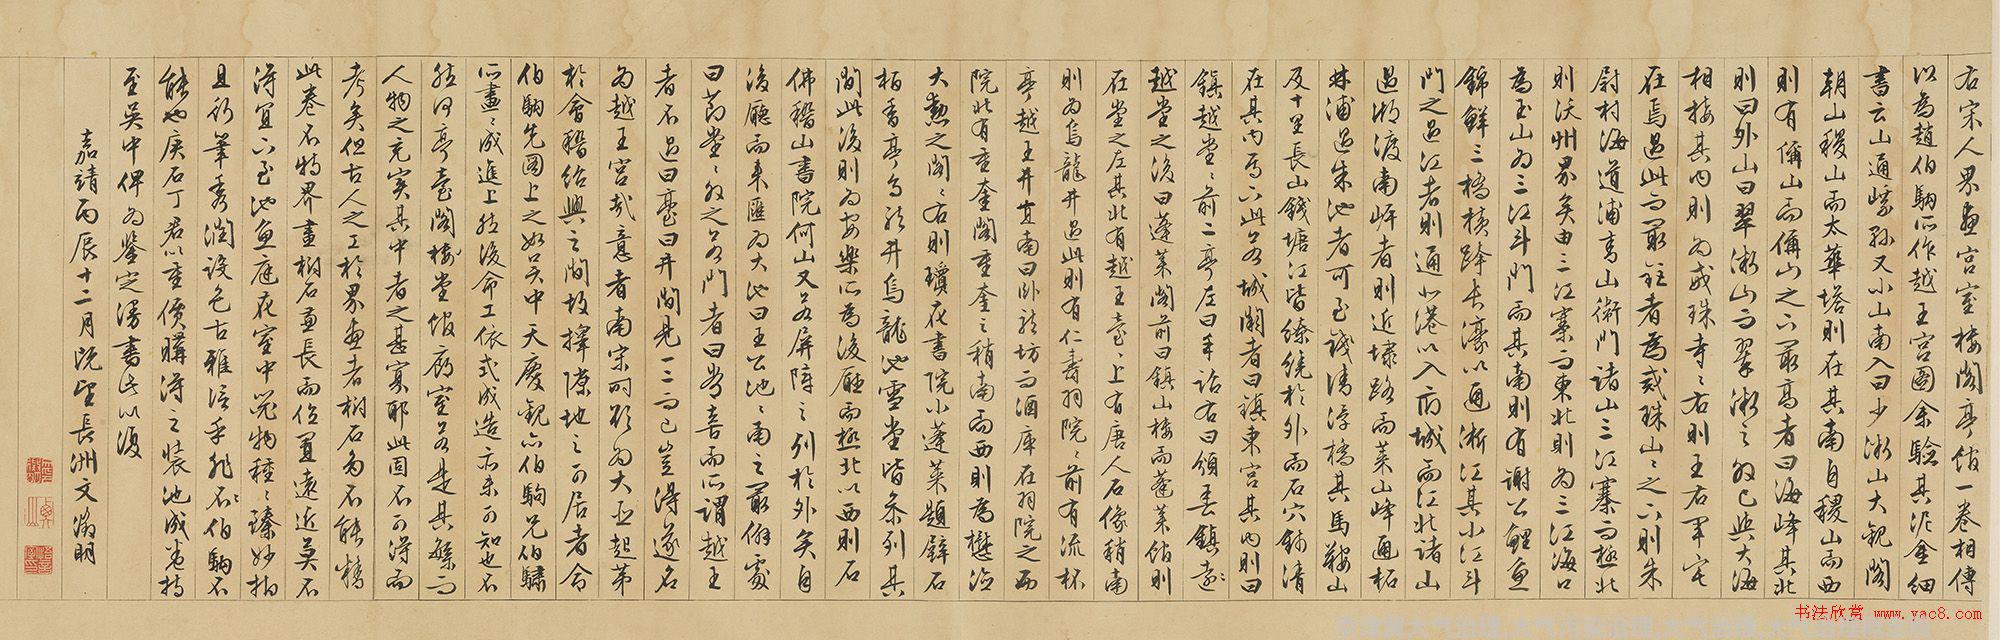 右宋人界畫宮室樓閣亭館一卷相傳
以為趙伯駒所作越王宮圖余驗其泥金細
書云山通嵊縣又小山南入曰少微山大觀閣
朝山稷山而太華塔則在其南自稷山而西
則有偁山而偁山之下最高者曰海峰其北
則曰外山曰翠
相接其內則為戒珠寺寺右則王右軍宅
在焉過此而最近者為戒珠山山之下則朱
尉村海道浦青山衙門諸山三江寨而極北
則沃州界矣由三江寨而東北則為三江海口
為玉山為三江斗門而其南則有謝公鯉魚
錦鮮三橋橫跨長濠以通浙江其小江斗
門之過江者則通北港以入府城而江北諸山
過湘渡南岸者則近埭路而萊山峰通柘
林浦過朱池者可至錢清浮橋其馬鞍山
及十里長山錢塘江皆繚繞於外而石穴錢清
在其內焉下此若城闕者曰鎮東宮其內則曰
鎮越堂堂前二亭左曰年話右曰頒春鎮遠
越堂之後曰蓬萊閣前曰鎮山樓而蓬萊館則
在堂之左其北有越王臺臺上有唐人石像稍南
則為烏龍井過此則有仁壽羽院院前有流杯
亭越王井宜南曰臥龍坊而酒庫在羽院之西
院北有重奎閣重奎之稍南而西則為懋治
大勲之閣閣右則瓊花書院小蓬萊題壁石
栢香亭烏龍井烏龍池雪堂皆參列其
間此後則為安樂所為後廳而極北以西則石
佛稽山書院何山又若屏障之列於外矣自
後廳而東匯為大池曰王公池池南之最僻處
曰莭堂堂之若門者曰觀音而所謂越王
者不過曰臺曰井間見一二而已豈得遂名
為越王宮哉意者南宋南欲為大也起第
於會稽紹興之間故擇隙地之可居者命
伯駒先圖上之如吳中天慶觀亦伯駒兄伯驌
所畫畫成進上然後命工依式成造亦未可知也不
然何亭臺閣樓堂館廊室若是其繁而
人物之充实其中者之甚寡耶此固不可得而
考矣但古人之工於界畫者樹石多不能精
此卷不特界畫樹石兼長而位置遠近莫不
得宜下至池魚庭花室中器物種種臻妙拍
且衍筆秀潤設色古雅信乎非伯駒不
能也庚石丁君以重價購得之裝池成卷持
至吳中俾為鑒定漫書此以復
嘉靖丙辰十二月既望長洲文徵明
书法欣赏 www.yac8.com